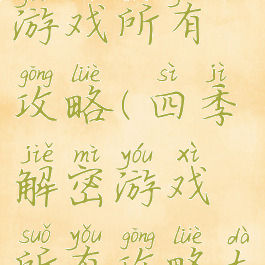 游戏所有
gōng lüè sì jì
攻略(四季
jiě mì yóu xì
解密游戏
suǒ yǒu gōng lüè dà
所有攻略大